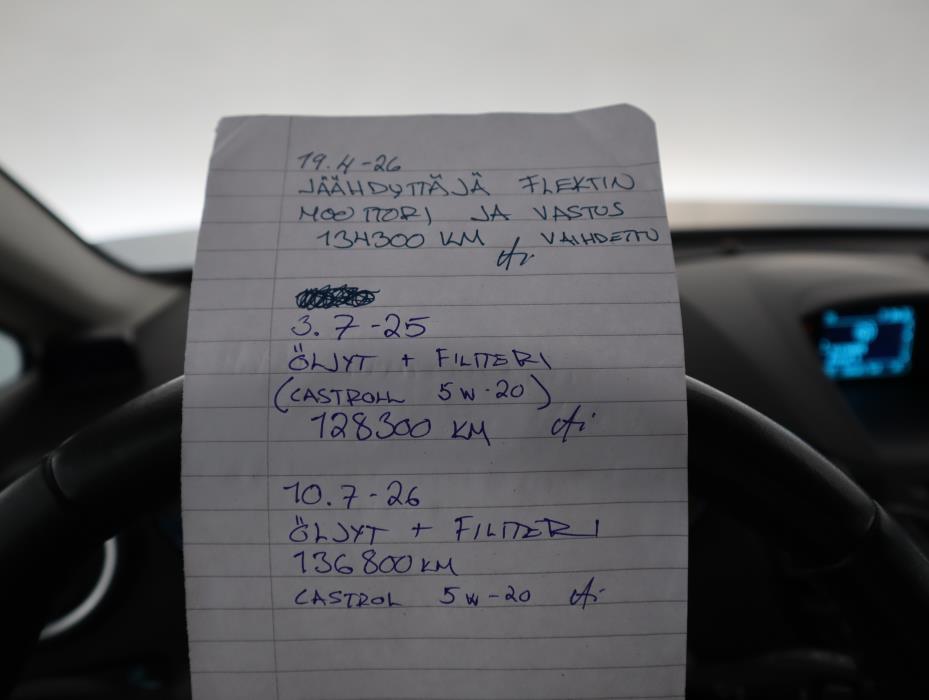 19.4-26
JÄÄHDYTTÄJÄ FLEKTIN
MOOTTORI JA VASTUS
134300 KM VAIHDETTU
3.7-25
ÖLJYT + FILTTERI
(CASTROLL 5W-20)
128300 KM
10.7-26
ÖLJYT + FILTTERI
136800 KM
CASTROL 5W-20